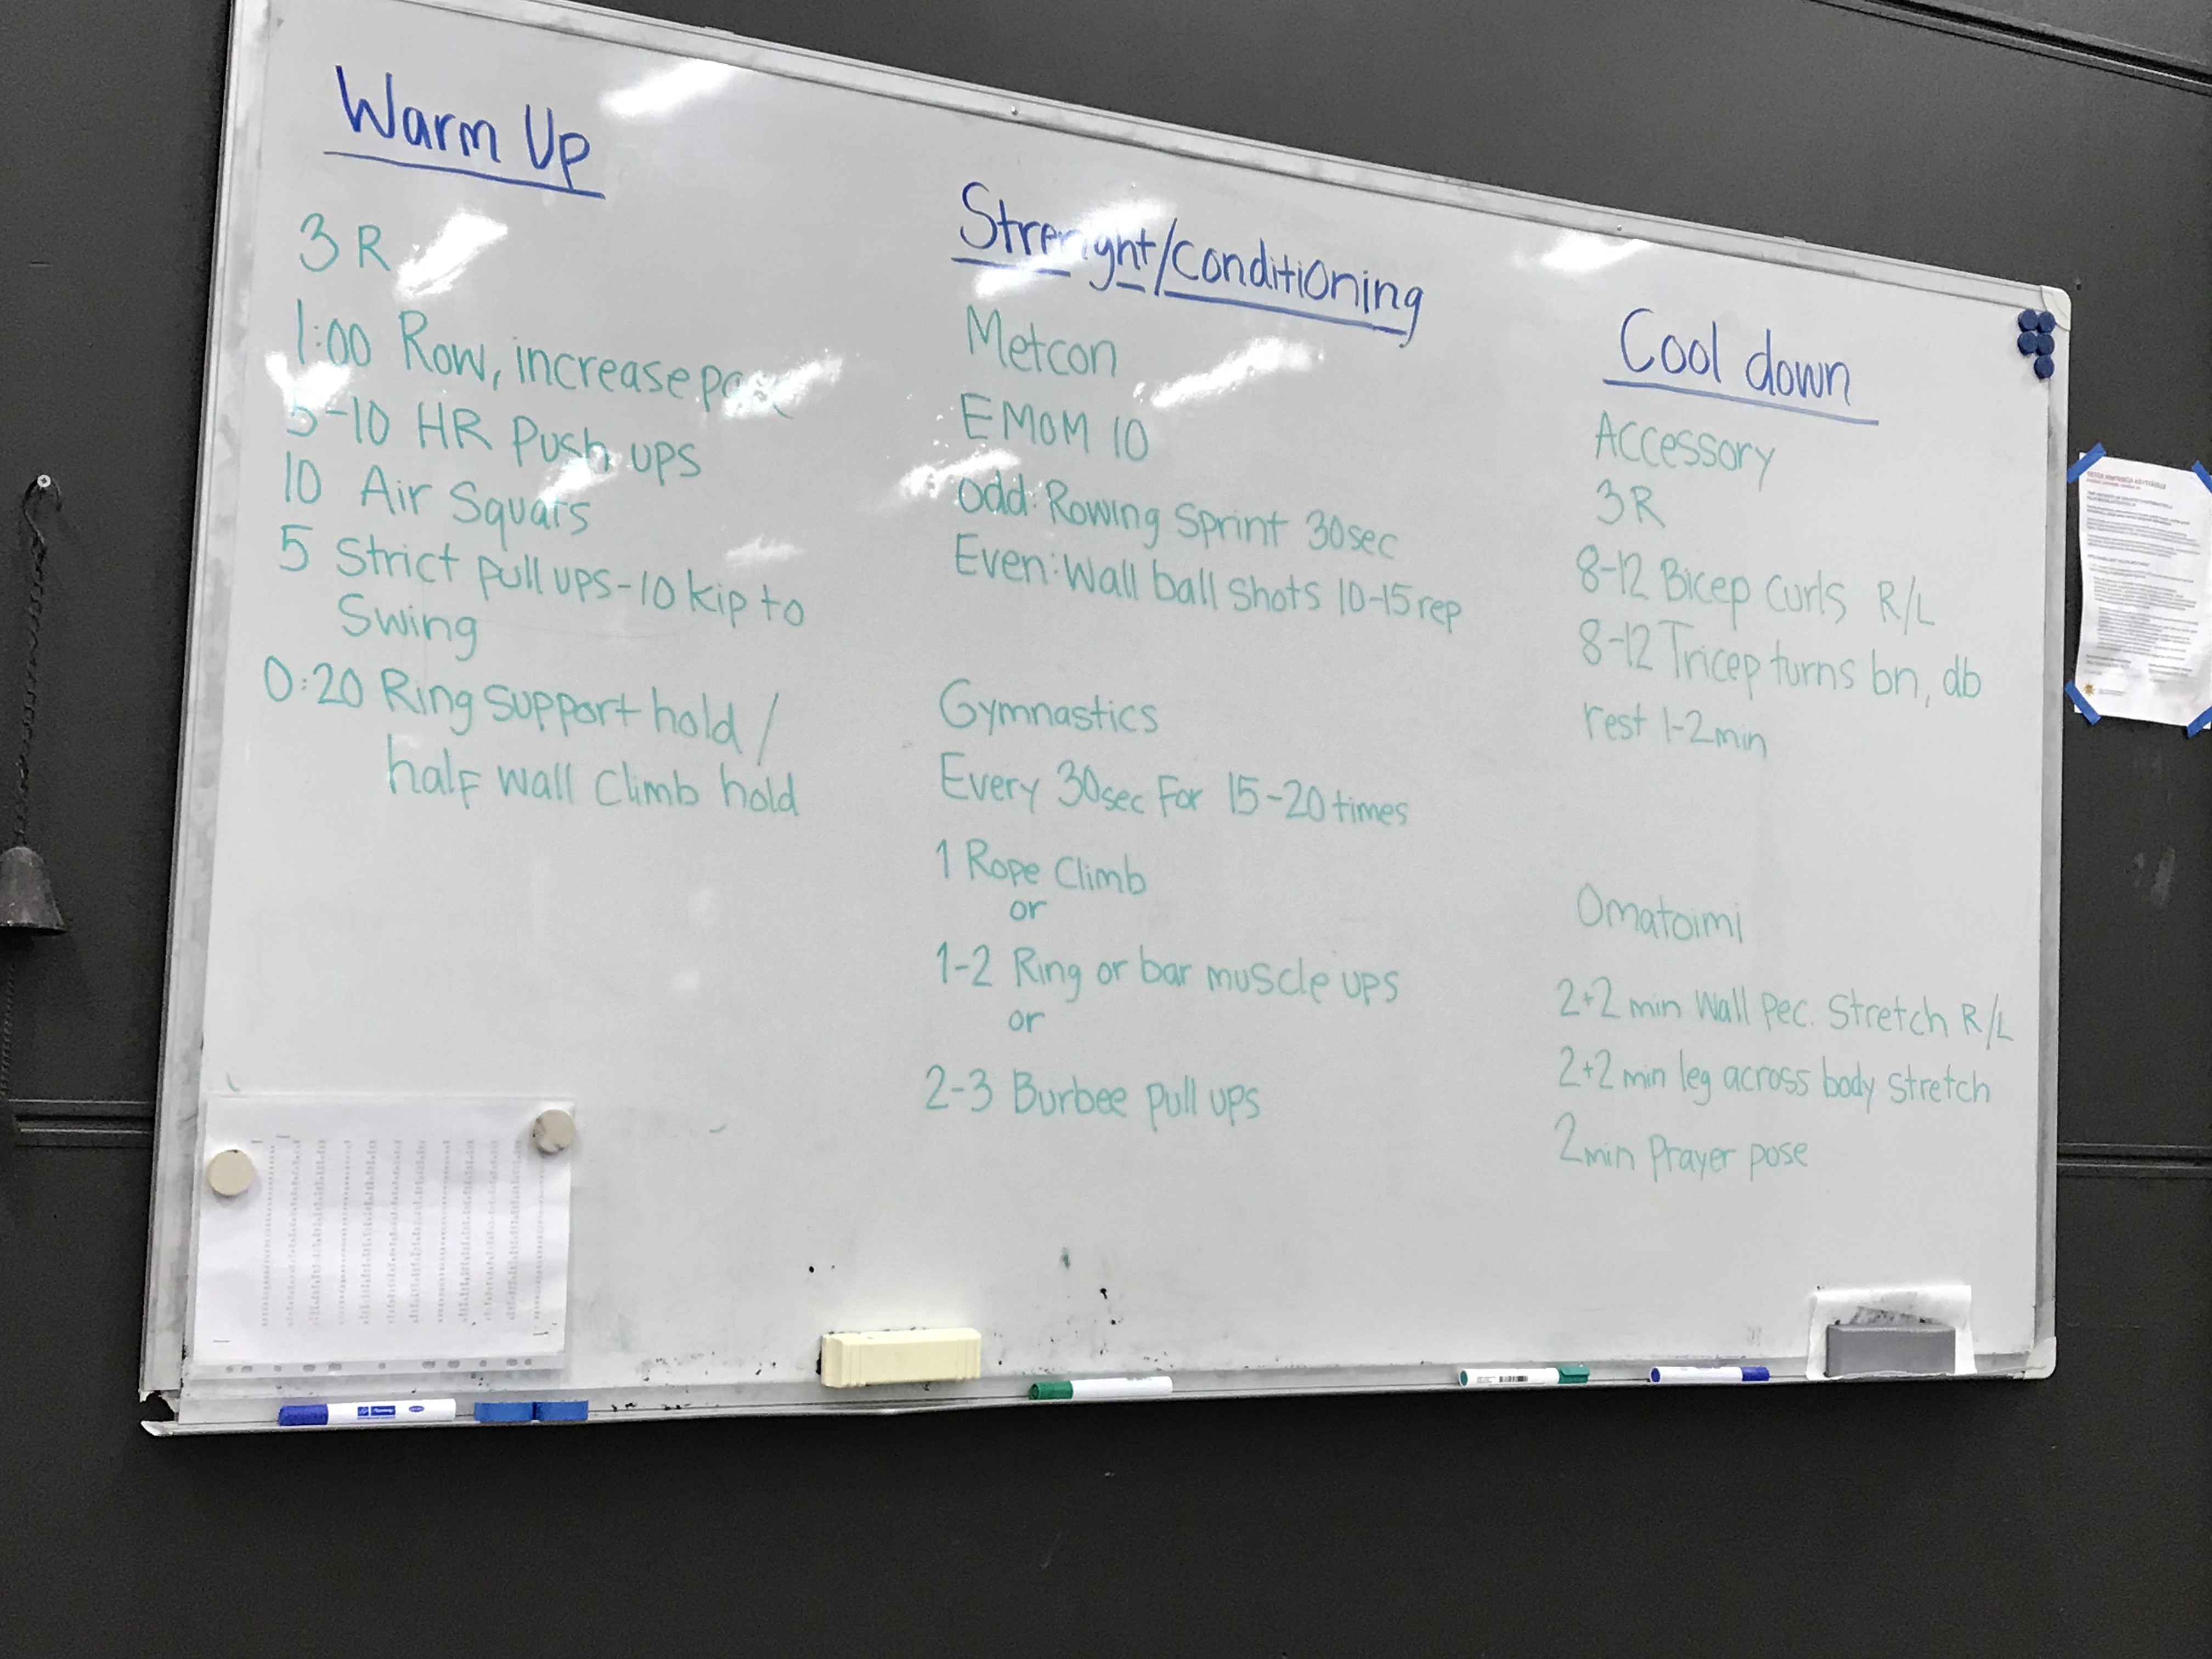 Warm Up
3 R
1:00 Row, increase
5-10 HR Push ups
10 Air Squats
5 Strict pull ups-10 kip to
Swing
0:20 Ring support hold /
half wall Climb hold
Strenght/conditioning
Metcon
EMOM 10
odd: Rowing Sprint 30sec
Even: Wall ball shots 10-15 rep
Gymnastics
Every 30sec For 15-20 times
1 Rope Climb
or
1-2 Ring or bar muscle ups
or
2-3 Burbee pull ups
Cool down
Accessory
3R
8-12 Bicep curls R/L
8-12 Tricep turns bn, db
rest 1-2min
Omatoimi
2+2 min Wall pec. Stretch R/L
2+2 min leg across body stretch
2min Prayer pose